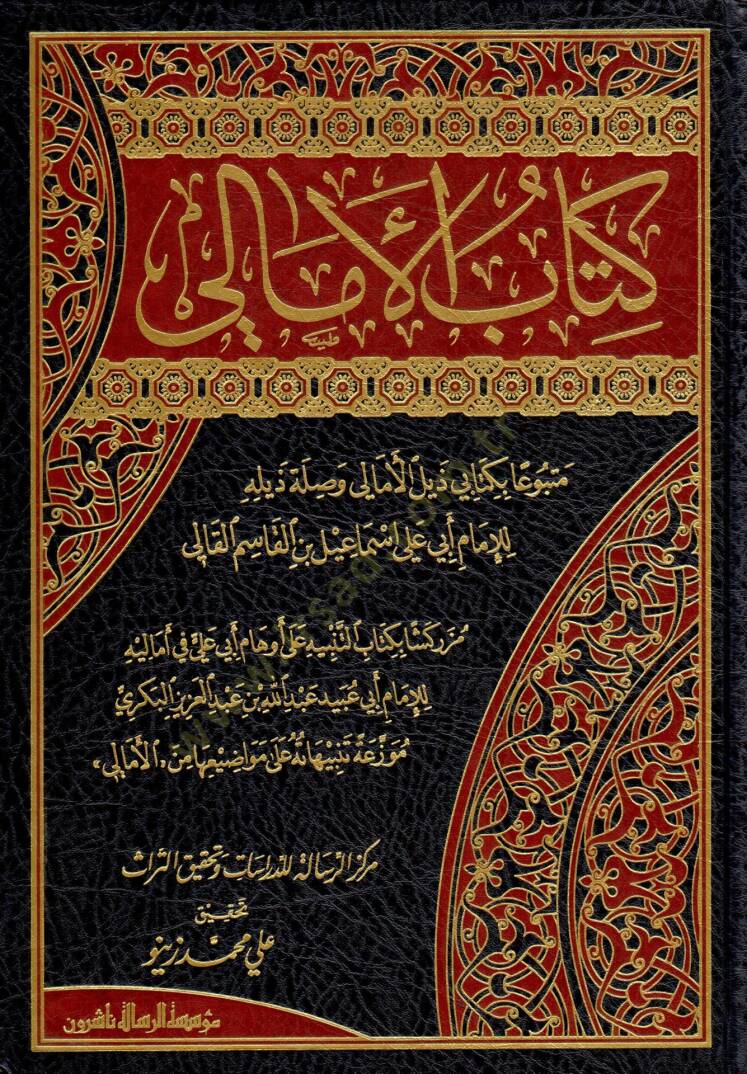 كِتَابُ الأَمَالِي
مَتبُوعًا بِكِتَابَي ذَيلِ الأَمَالي وَصِلَة ذَيلِهِ
لِلإِمَامِ أَبِي عَلي إسْمَاعِيْل بنِ القَاسِم القَالِي
مُزَركَشًا بِكِتَابِ التَّنْبِيه عَلَى أَوهَامِ أَبي عَليٍّ في أَمَالِيْهِ
لِلإِمَامِ أَبي عُبَيد عَبْدِ اللهِ بْنِ عَبْدِ العَزِيزِ البَكرِيِّ
مُوَزَّعَةً تَنْبِيْهَاتُهُ عَلَى مَوَاضِيْعِهَا مِنَ «الأَمَالِي»
مركز الرسالة للدراسات وتحقيق التراث
تحقيق
علي محمد زينو
مؤسسة الرسالة ناشرون